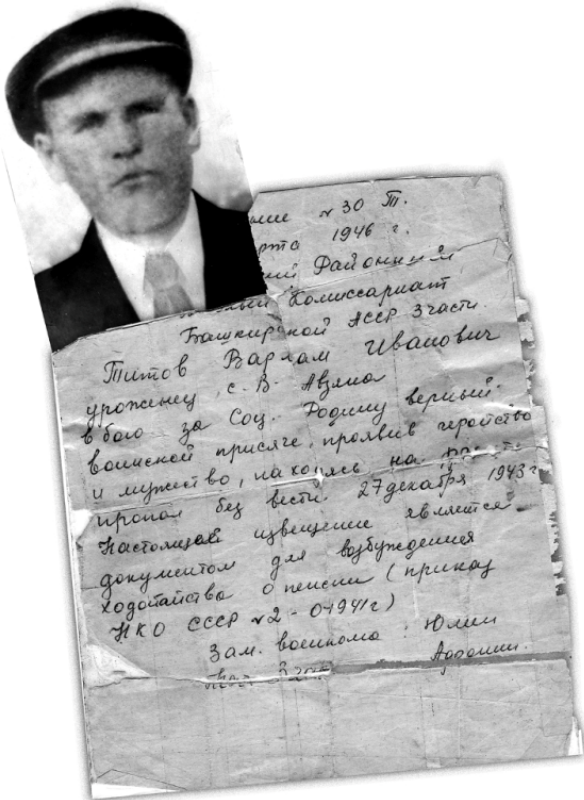 № 30 Т.
1946 г.
Районный
Комиссариат
Башкирской АССР 3 части.
Титов Варлам Иванович
урожинец, с. В. Авзяна
в бою за Соц. Родину верный
воинской присяге, проявив геройство
и мужество, находясь на
пропал без вести 27 декабря 1943 г
Настоящей извещение является
документом для возбуждения
ходотайства о пенсии (приказ
НКО СССР №2-0-1941г)
Зам. военкома: Юлин